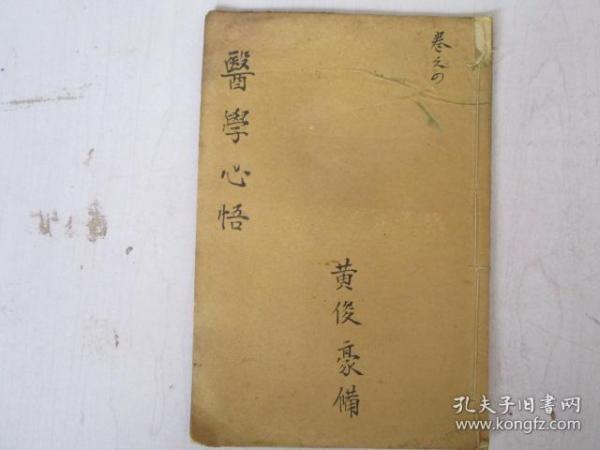 卷之四
醫學心悟
黄俊豪備
孔夫子旧书网
www.kongfz.com